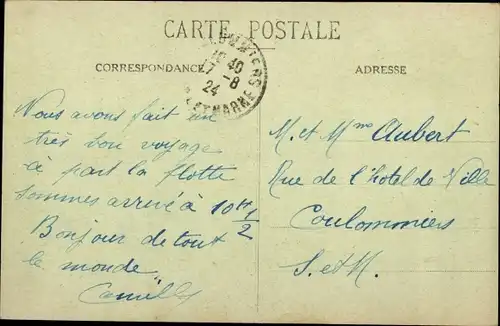 CARTE POSTALE
CORRESPONDANCE
ADRESSE
COULOMMIERS
16 40
17 - 8
24
ET MARNE
Nous avons fait un
très bon voyage
à part la flotte
sommes arrivé à 10h 1/2
Bonjour de tout
le monde
Camille
M. et Mme Aubert
Rue de l'hotel de Ville
Coulommiers
S. et M.